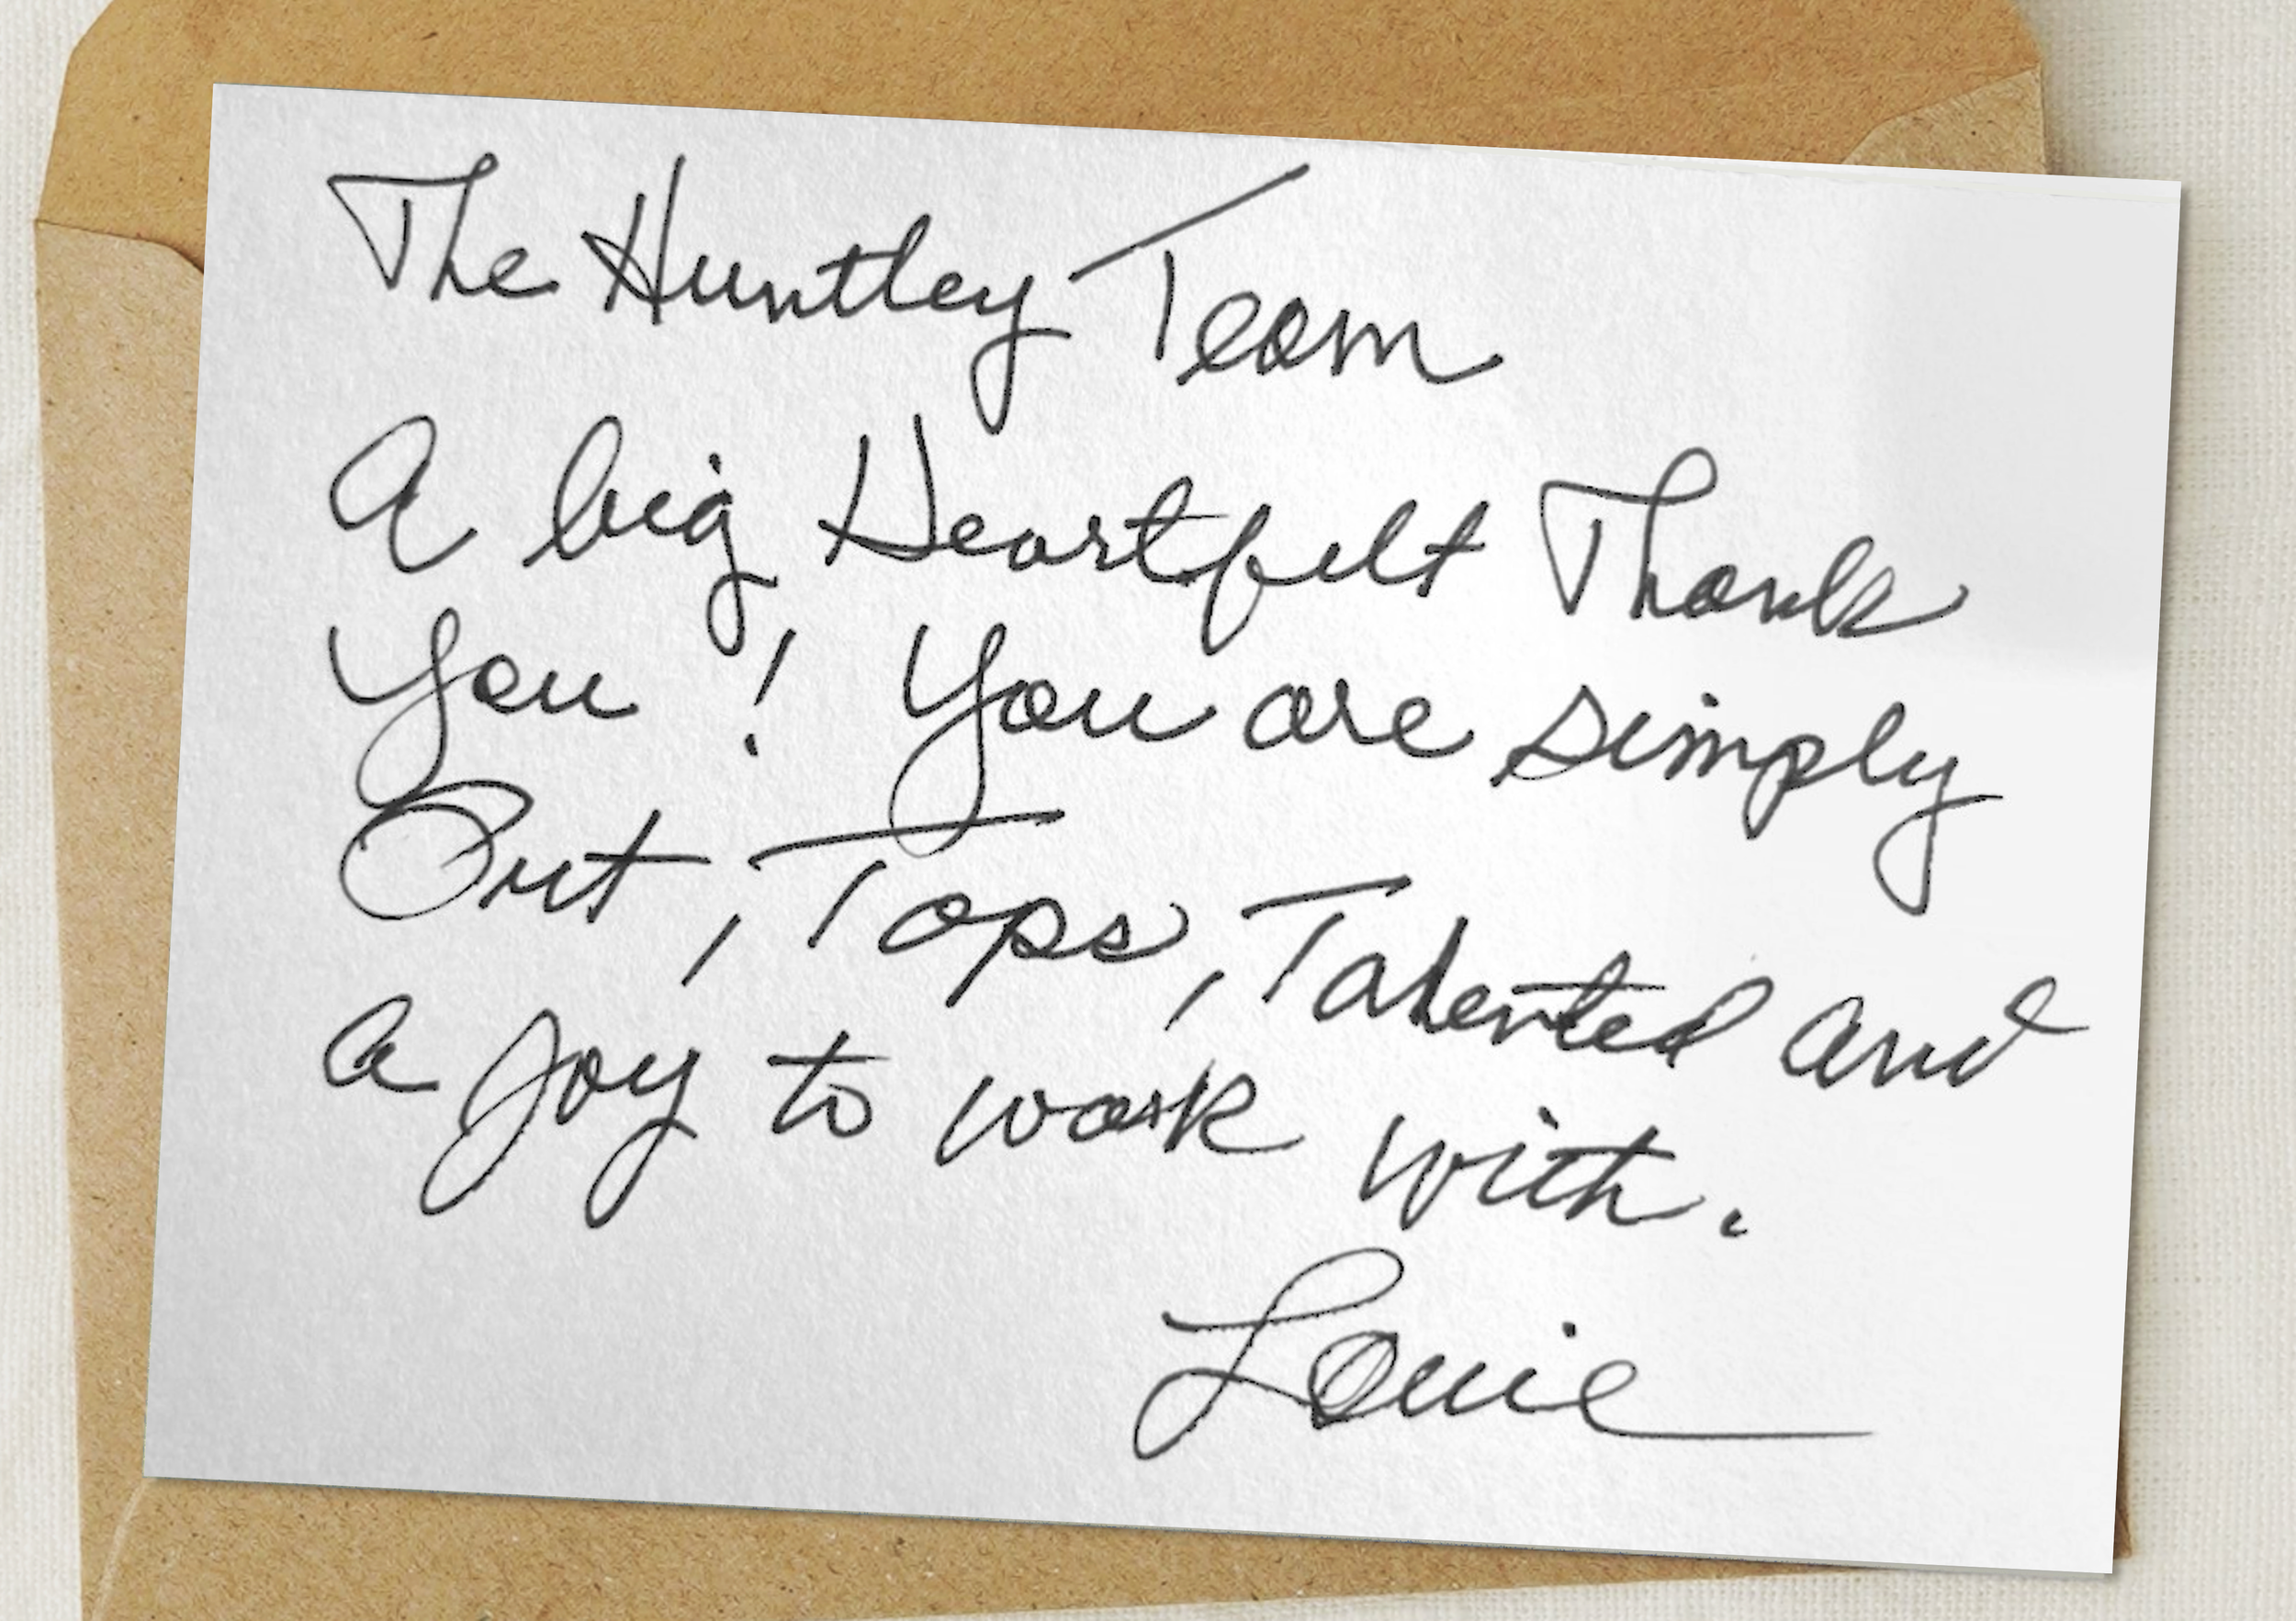 The Huntley Team
A big Heartfelt Thank
You! You are simply
Out, Tops, Talented and
a joy to work with.
Louie